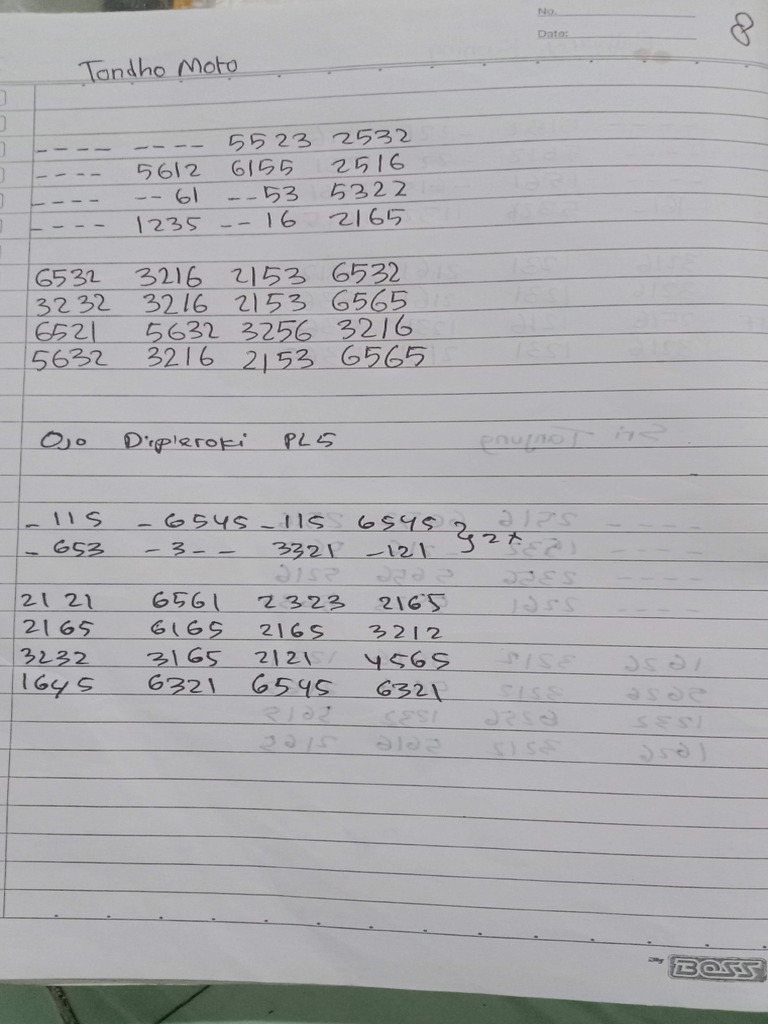 No.
Date:
8
Tondho Moto
---- ---- 5523 2532
---- 5612 6155 2516
---- --61 --53 5322
---- 1235 --16 2165
6532 3216 2153 6532
3232 3216 2153 6565
6521 5632 3256 3216
5632 3216 2153 6565
Ojo Dipleroki PL5
-115 -6545 -115 6545 } 2x
-653 -3-- 3321 -121
2121 6561 2323 2165
2165 6165 2165 3212
3232 3165 2121 4565
1645 6321 6545 6321
BOSS